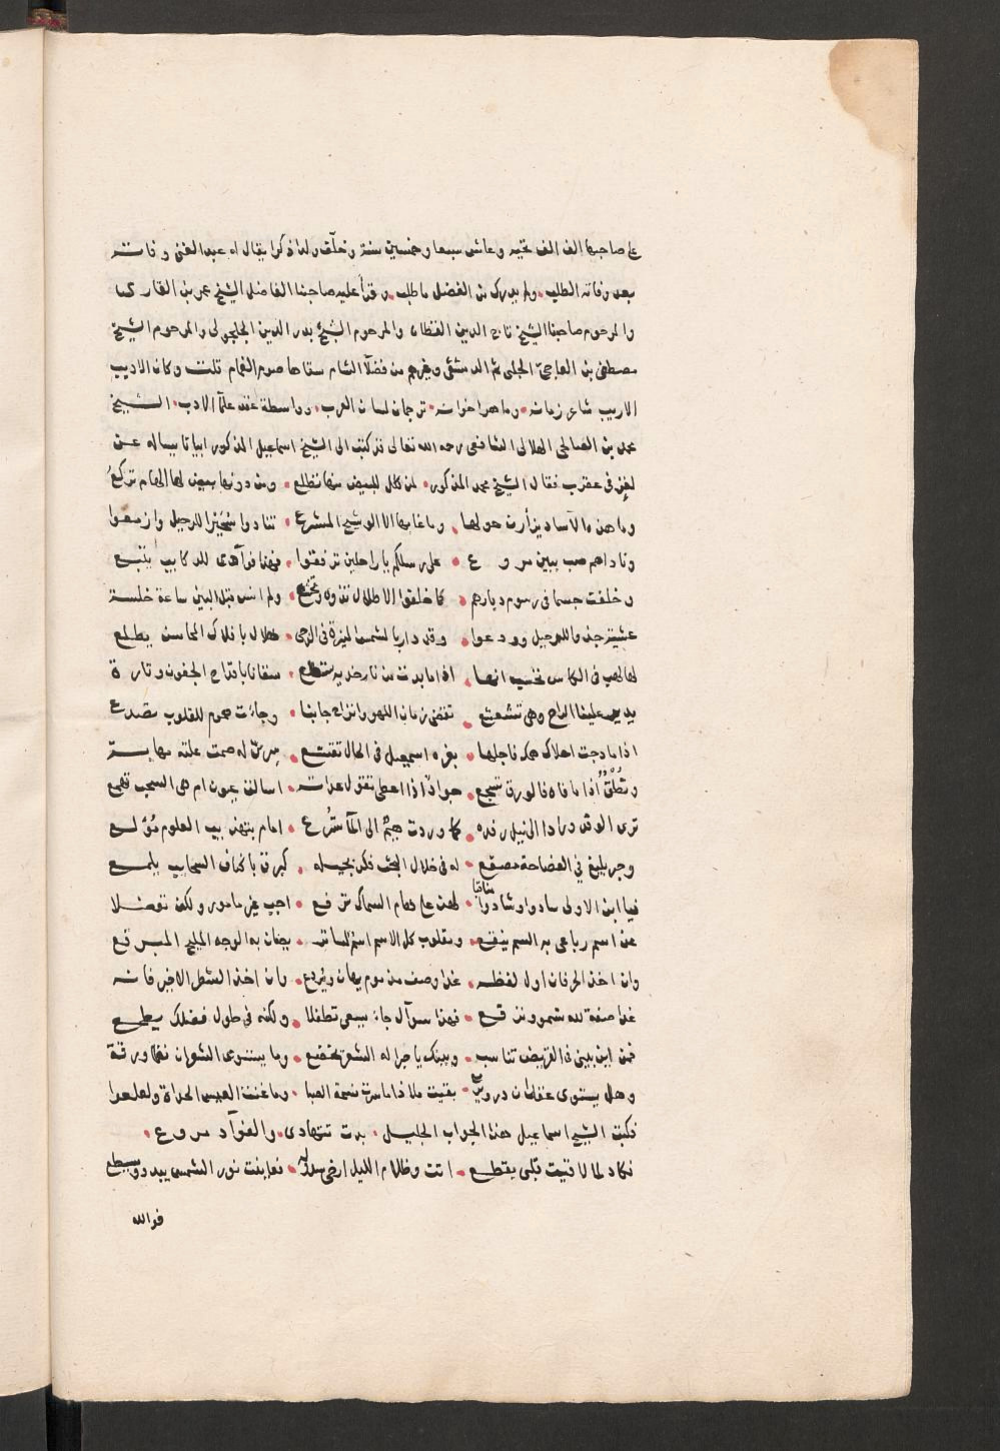 على صاحبها الف الف تحيه وعاش سبعا وخمسين سنة وخلّف ولدا ذكرا يقال له عبد الغنى وفاته
بعد وفاته الطلب ولم يدرك من الفضل ما طلب وقرأ عليه صاحبنا الفاضل الشيخ عمر بن القارى
والمرحوم صاحبنا الشيخ تاج الدين القطان والمرحوم الشيخ بدر الدين والمرحوم الشيخ
مصطفى بن ثم الدمشقى وغيرهم من فضلآ الشام سقاها صوب الغمام قلت وكان الاديب
الاريب شاعر زمانه وماهر اخوانه ترجمان لسان العرب وواسطة عقد علمآ الادب الشيخ
محمد بن الصالحى الهلالى الشافعى رحمه الله تعالى قد كتب الى الشيخ اسماعيل المذكور ابياتا يساله عن
لغز فى عقرب فقال الشيخ محمد المذكور لمن كلل للبيض منها تطلع ومن دونها بيض لها الهام تركع
وما هذه الآساد يزأرن حولها وما غابها الا الوشيج المشرع تنادوا سحيرا للرحيل وازمعوا
وناداهم صب ببين مروع على رسلكم يا راحلين ترفقوا فهذا فوآدى للركايب يتبع
وخلفت جسما فى رسوم ديارهم كما خلفوا الاطلال تذوى ولم انس قبل البين ساعة خلسة
عشية جدوا للرحيل وودعوا وقد دار بالشمس المنيرة فى الدجى هلال بافلاك المحاسن يطلع
لها لهب فى الكاس تحسب انها اذا ما بدت من نار خديه سقانا باقداح الجفون وتارة
يدير علينا الراح وهى تشعشع تقضى زمان اللهو وانزاح جانبا وجاءت هموم للقلوب تصدع
اذا ما دجت احلاك همك فاجلها بغرة اسمعيل فى الحال تقشع له صحت علته مهابة
وتُطْرِقُ اذا ما فاه فالورق تسجع جوادٌ اذا اعطى تقول عداته اسالت عيون ام هى السحب تهمع
ترى الوفد ورادا الى نيل رفده كما وردت هيمٌ الى المآ شُرع امام بتهذيب العلوم مولع
وحبر بليغ فى الفصاحة مصقع له فى خلال البحث فكر يخيله كبرق باكناف السحايب يلمع
فيا ابن الاولى سادوا وشادوا مناقبا لهن على هام السماك ترفع اجب غير مامور ولكن تفضلا
عن اسم رباعى به السم ينقع ومقلوب كل الاسم يصان به الوجه المليح المبرقع
وان اخذ الحرفان اول لفظه غدا وصف مذموم يهان ويردع وان اخذ الشطر الاخير فانه
غدا صفة لله تسمو وترفع فهذا سوآل جاء يسعى تطفلا ولكنه فى طول فضلك يطمع
فمن اين بينى فى القريض تناسب وبينك يا من له الشعر يخضع وما يستوى النشوان نغما ورقة
وهل يستوى عقدان در بقيت ملاذا ما سرت نسمة الصبا وما غنت العيس الحداة ولعلعوا
فكتب الشيخ اسماعيل هذا الجواب الجليل بدت تتهادى والفوآد مروع
فكاد لما لاقيت قلبى يقطع اتت وظلام الليل ارخى سدوله فعاينت نور الشمس يبدو ويسطع
فوالله